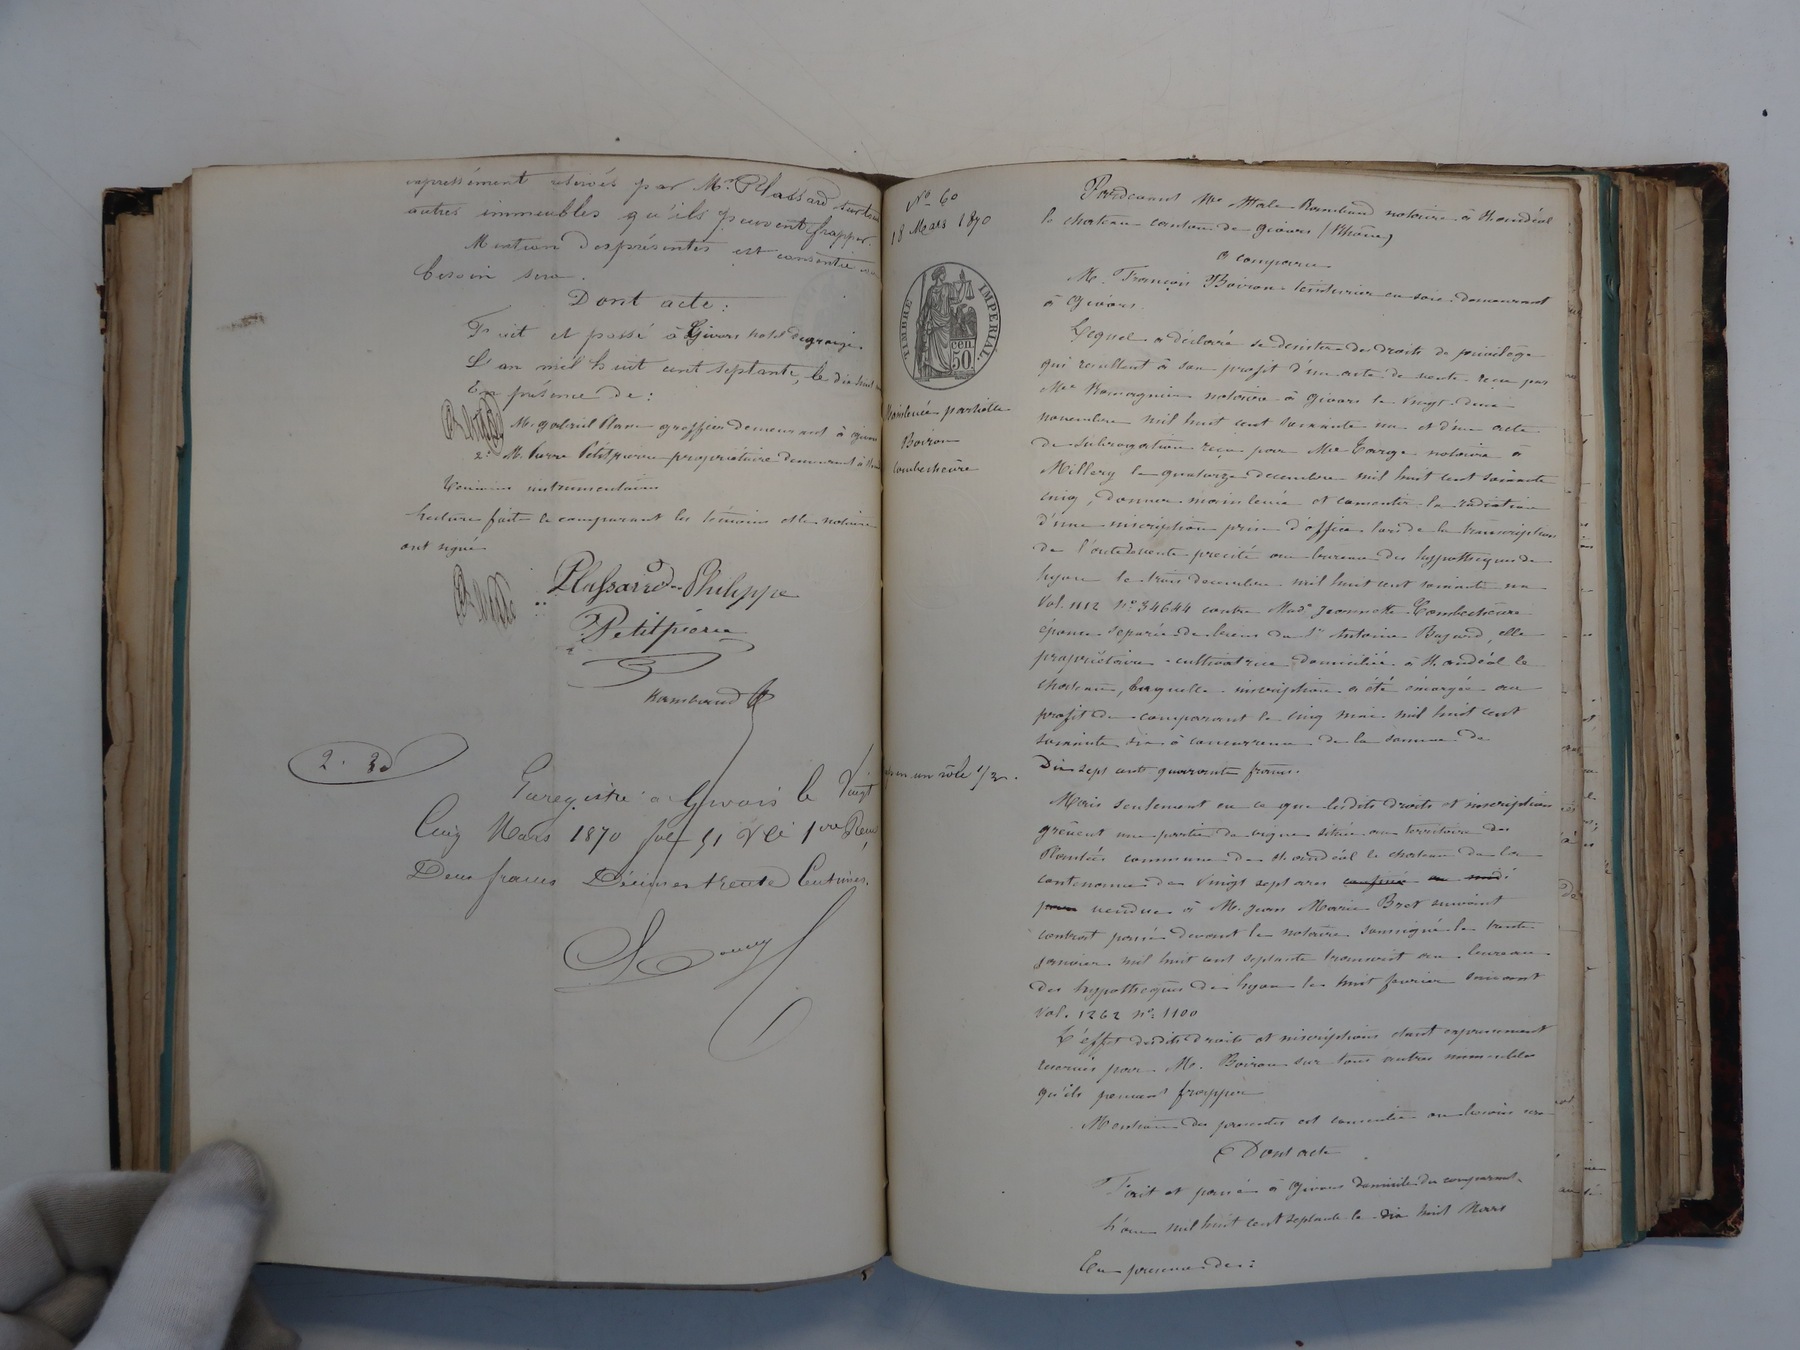 expressément réservés par Mr. Plassard sur tous
autres immeubles qu'ils peuvent frapper.
Mention des présentes est consentie où
besoin sera.
Dont acte:
Fait et passé à Givors hotel
L'an mil huit cent septante, le dix huit
En présence de:
M. gabriel greffier demeurant à givors
2° M. Pierre Petitpierre propriétaire demeurant à
témoins instrumentaires
Lecture faite le comparant les témoins et le notaire
ont signé
Plassard Philippe
Petitpierre
Rambaud
2. 30
Enregistré à Givors le Vingt
Cinq Mars 1870 fol 51 Vo Ce 1ere Reçu
Deux francs Décimes trente Centimes.
No 60
18 Mars 1870
TIMBRE IMPERIAL.
50 cen
Mainlevée partielle
Boiron
Combecheure
un rôle 1/2.
Pardevant Me Rambaud notaire à St andéol
le chateau canton de givors (Rhône)
a comparu
M. François Boiron teinturier en soie demeurant
à Givors
Lequel a déclaré se désister des droits de privilège
qui résultent à son profit d'un acte de vente reçu par
Me Romagnin notaire à givors le vingt deux
novembre mil huit cent soixante un et d'un acte
de subrogation reçu par Me notaire à
Millery le quatorze decembre mil huit cent soixante
cinq, donner mainlevée et consentir la radiation
d'une inscription prise d'office lors de la transcription
de l'acte de vente précité au bureau des hypothèques de
Lyon le trois decembre mil huit cent soixante un
Vol. 1112 no. 34644 contre Made Jeannette Combecheure
épouse séparée de biens du Sr Antoine Bujard, elle
propriétaire cultivatrice domiciliée à St andéol le
chateau, laquelle inscription a été émargée au
profit de comparant le cinq mai mil huit cent
soixante six à concurrence de la somme de
Dix sept cents quarante francs.
Mais seulement en ce que lesdits droits et inscription
grèvent une partie de vigne située au territoire des
Plantées commune de St andéol le chateau de la
contenance de Vingt sept ares confiné au midi
par vendue à M. Jean Marie Bret suivant
contrat passé devant le notaire soussigné le trente
janvier mil huit cent septante transcrit au bureau
des hypothèques de Lyon le huit fevrier suivant
Vol. 1262 no. 1100
L'effet desdits droits et inscriptions étant expressément
réservés pour M. Boiron sur tous autres immeubles
qu'ils peuvent frapper
Mention des présentes est consentie où besoin sera
Dont acte
Fait et passé à Givors domicile du comparant.
L'an mil huit cent septante le dix huit Mars
En présence de: